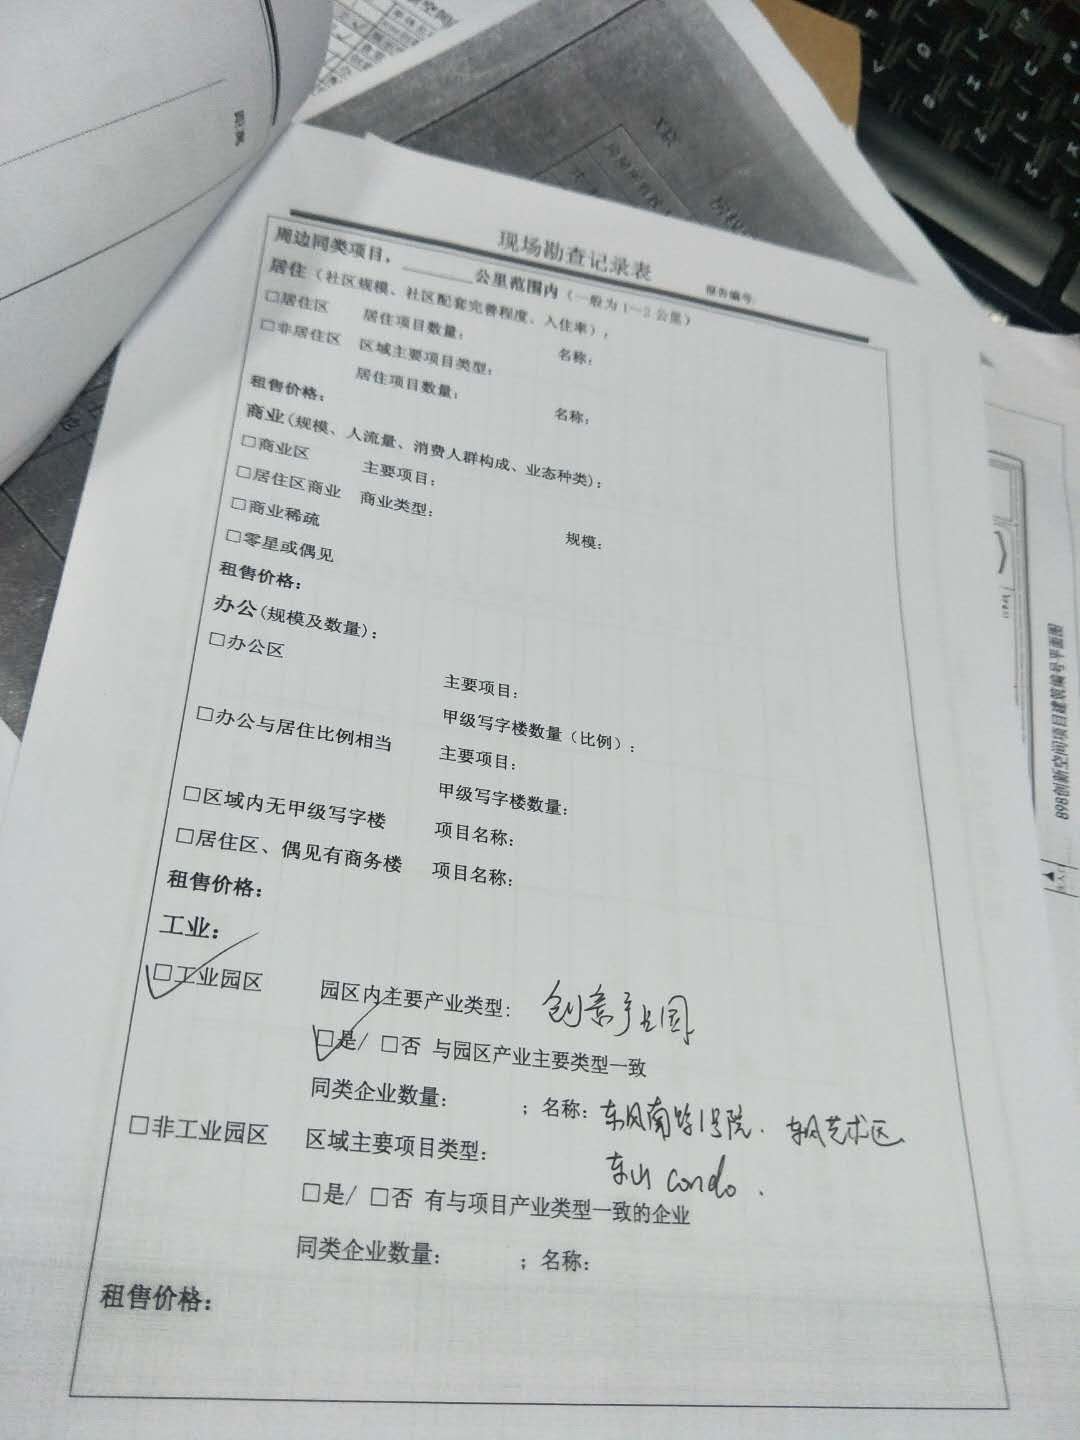 现场勘查记录表
报告编号:
周边同类项目，______公里范围内（一般为1-2公里）
居住（社区规模、社区配套完善程度、入住率）:
□居住区 居住项目数量: 名称:
□非居住区 区域主要项目类型:
居住项目数量: 名称:
租售价格:
商业(规模、人流量、消费人群构成、业态种类):
□商业区 主要项目:
□居住区商业 商业类型: 规模:
□商业稀疏
□零星或偶见
租售价格:
办公(规模及数量):
□办公区 主要项目:
甲级写字楼数量（比例）:
□办公与居住比例相当 主要项目:
甲级写字楼数量:
□区域内无甲级写字楼 项目名称:
□居住区、偶见有商务楼 项目名称:
租售价格:
工业:
□工业园区 园区内主要产业类型: 创意产业园
□是/ □否 与园区产业主要类型一致
同类企业数量: ；名称: 东风南路1号院. 东风艺术区
东山 condo.
□非工业园区 区域主要项目类型:
□是/ □否 有与项目产业类型一致的企业
同类企业数量: ；名称:
租售价格:
898创新空间项目建筑编号平面图